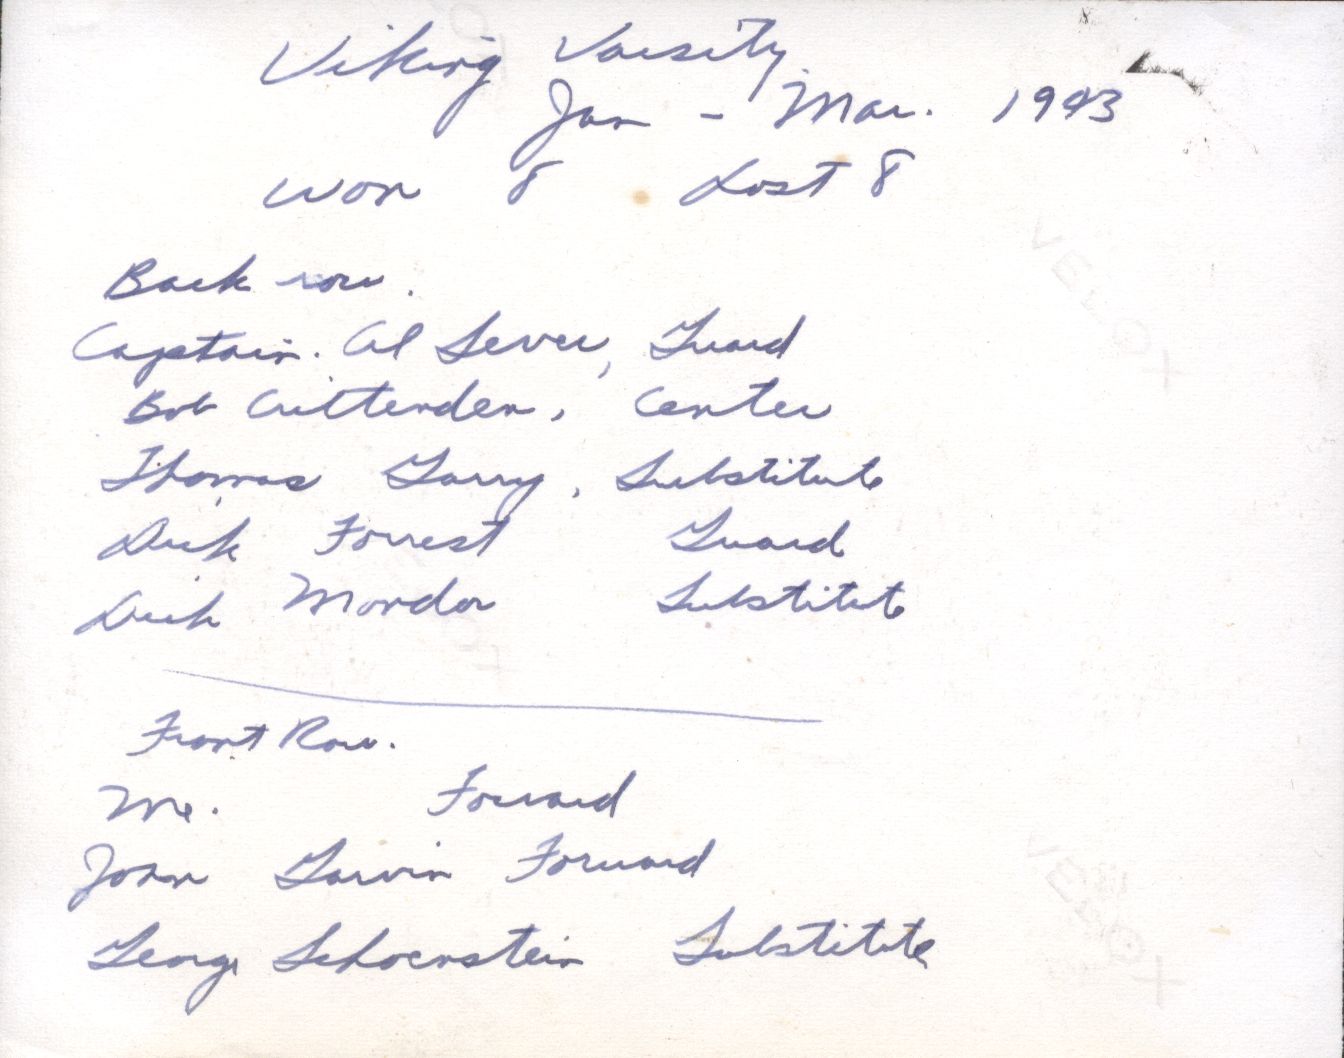 Viking Varsity
Jan - Mar. 1943
Won 8 Lost 8
Back row.
Captain. Al Sever, Guard
Bob Crittenden, Center
Thomas Garry, Substitute
Dick Forrest Guard
Dick Mordor Substitute
Front Row.
Me. Forward
John Garvin Forward
George Schoenstein Substitute